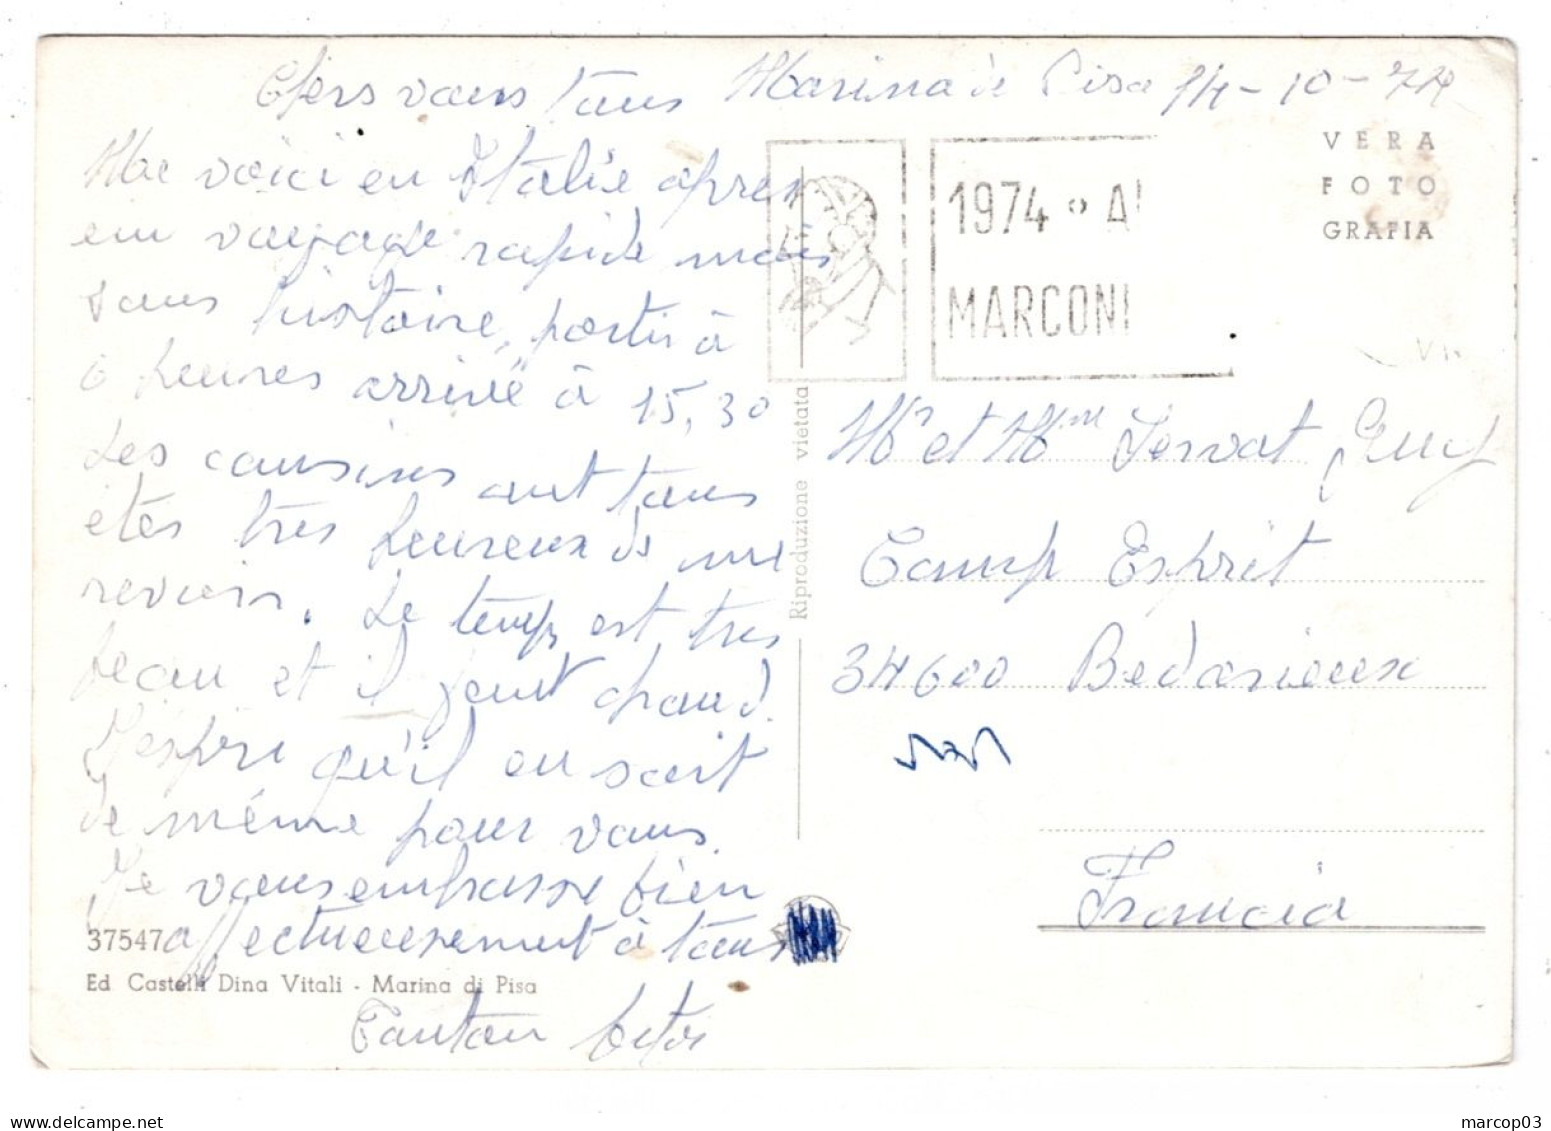 Chers vous tous Marina di Pisa 14-10-74
Me voici en Italie apres
un voyage rapide mais
sans histoire, partir à
6 heures arrivé à 15,30
Les cousins ont tous
étés très heureux de me
revoir. Le temps est tres
beau et il fait chaud.
J'espère qu'il en soit
de même pour vous.
Je vous embrasse bien
affectueusement à tous
Tonton
37547
Ed Castelli Dina Vitali - Marina di Pisa
Riproduzione vietata
1974
MARCONI
VERA
FOTO
GRAFIA
Mr et Mme Servat Guy
Camp Esprit
34600 Bedarieux
Francia
marcop03